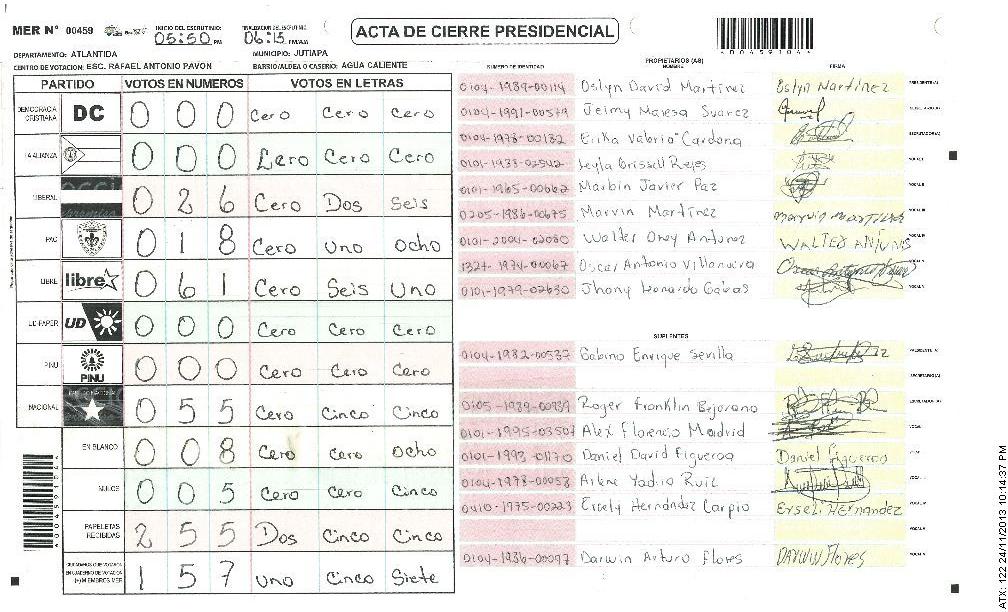 MER Nº 00459
INICIO DEL ESCRUTINIO: 05:50 PM
FINALIZACION DEL ESCRUTINIO: 06:15 PM/AM
ACTA DE CIERRE PRESIDENCIAL
00459104
DEPARTAMENTO: ATLANTIDA MUNICIPIO: JUTIAPA
CENTRO DE VOTACION: ESC. RAFAEL ANTONIO PAVON BARRIO/ALDEA O CASERIO: AGUA CALIENTE
PARTIDO VOTOS EN NUMEROS VOTOS EN LETRAS
DEMOCRACIA CRISTIANA DC 0 0 0 Cero Cero Cero
LA ALIANZA 0 0 0 Cero Cero Cero
LIBERAL 0 2 6 Cero Dos Seis
PAC 0 1 8 Cero Uno Ocho
LIBRE libre 0 6 1 Cero Seis Uno
UD-FAPER UD 0 0 0 Cero Cero Cero
PINU PINU 0 0 0 Cero Cero Cero
NACIONAL 0 5 5 Cero Cinco Cinco
EN BLANCO 0 0 8 Cero Cero Ocho
NULOS 0 0 5 Cero Cero Cinco
PAPELETAS RECIBIDAS 2 5 5 Dos Cinco Cinco
CIUDADANOS QUE VOTARON EN CUADERNO DE VOTACION (+) MIEMBROS MER 1 5 7 Uno Cinco Siete
PROPIETARIOS (AS)
NUMERO DE IDENTIDAD NOMBRE FIRMA
0104-1989-00114 Oslyn David Martinez Oslyn Martinez PRESIDENTE(A)
Jeimy Maresa Suarez
0104-1978-00182 Erika Valeria Cardona
Leyla Grissell Reyes
0101-1965-00662 Marbin Javier Paz
0205-1986-00675 Marvin Martinez Marvin Martinez
0101-2004-02080 Walter Oney Antunez WALTER
1327-1974-00067 Oscar Antonio Villanueva
0101-1979-02630 Jhony Leonardo
SUPLENTES
0104-1982-00537 Gabino Enrique Sevilla
0105-1989-00939 Roger Franklin Bejarano
0101-1995-03507 Alex Florencio Madrid
0101-1993-01170 Daniel David Figueroa Daniel Figueroa
0104-1978-00053 Arlene Yadira Ruiz
0410-1975-00223 Ersely Hernández Carpio Erseli Hernandez
0104-1936-00097 Darwin Arturo Flores DARWIN Flores
ATX: 122 24/11/2013 10:14:37 PM